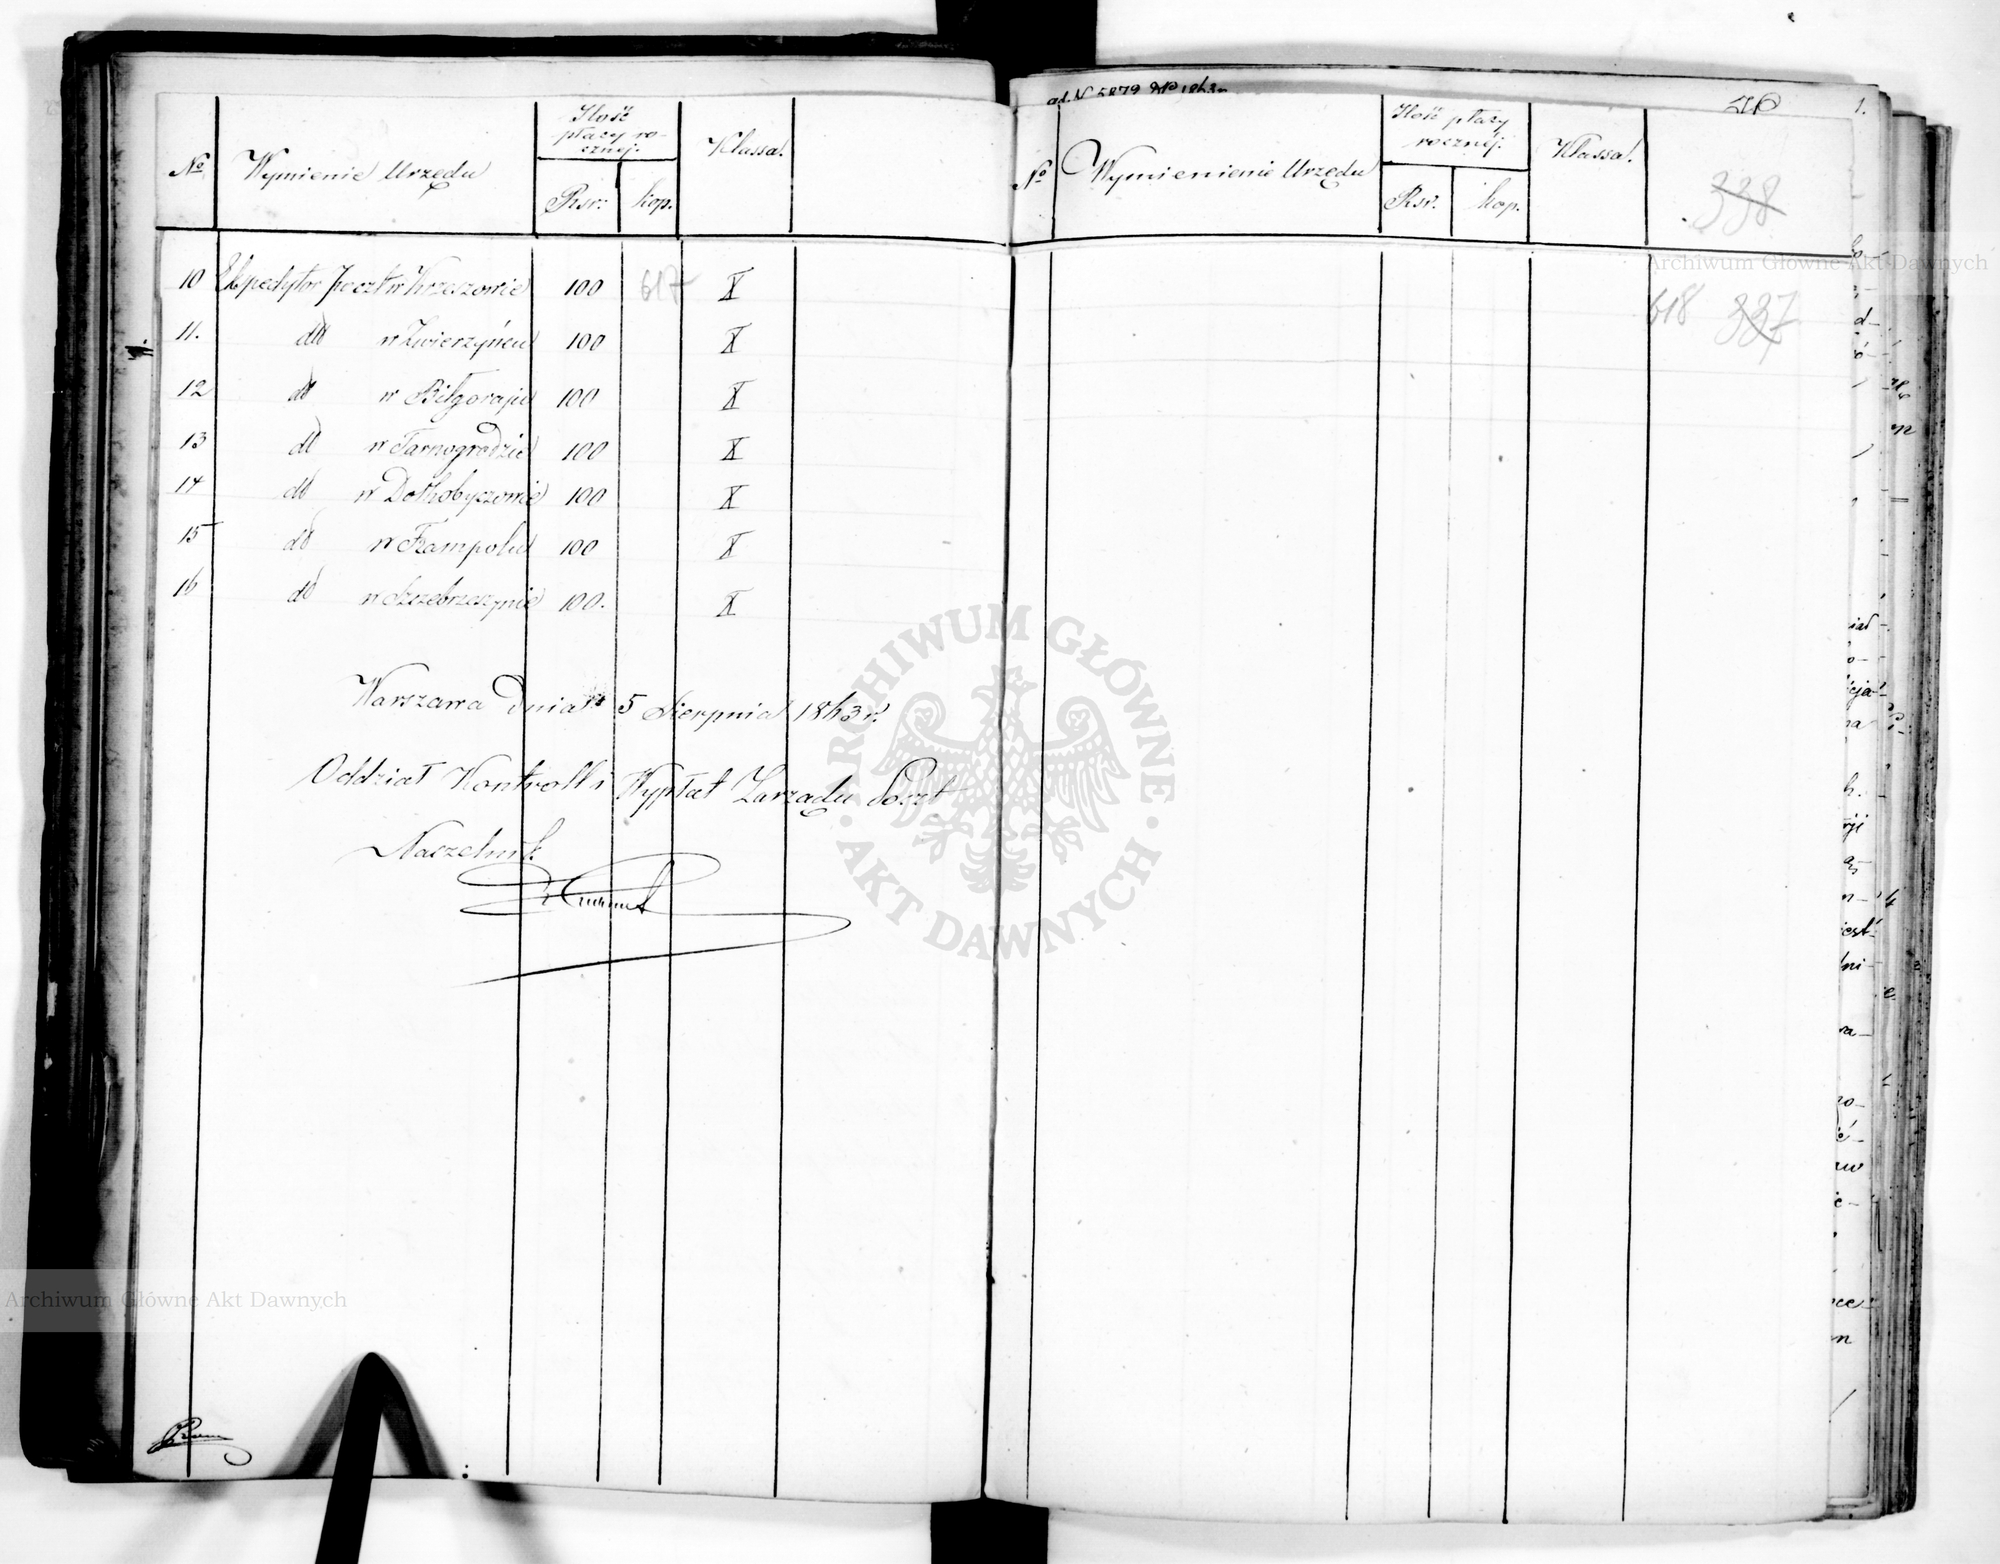 № Wymienie Urzędu Ilość płacy rocznej. Klassa.
Rsr. kop.
10 Expedytor poczt w Krzeszowie 100 617 X
11. dto w Zwierzyńcu 100 X
12 dto w Biłgoraju 100 X
13 dto w Tarnogrodzie 100 X
14 dto w Dołhobyczowie 100 X
15 dto w Frampolu 100 X
16 dto w Szczebrzeszynie 100. X
Warszawa dnia 5 Sierpnia 1863 r.
Oddział Kontrolli i Wypłat Zarządu Poczt
Naczelnik
ad N 5879 1863 r
1.
№ Wymienienie Urzędu Ilość płacy rocznej. Klassa.
Rsr. kop.
338
618 337
Archiwum Główne Akt Dawnych
ARCHIWUM GŁÓWNE
AKT DAWNYCH
Archiwum Główne Akt Dawnych